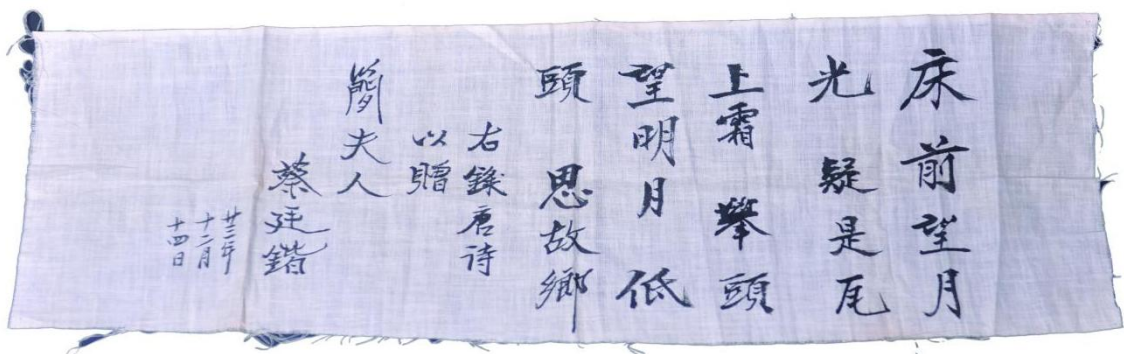 床前望月
光 疑是尾
上霜 舉頭
望明月 低
頭 思故鄉
右錄唐诗
以贈
簡夫人
蔡廷鍇
廿三年
十二月
十四日